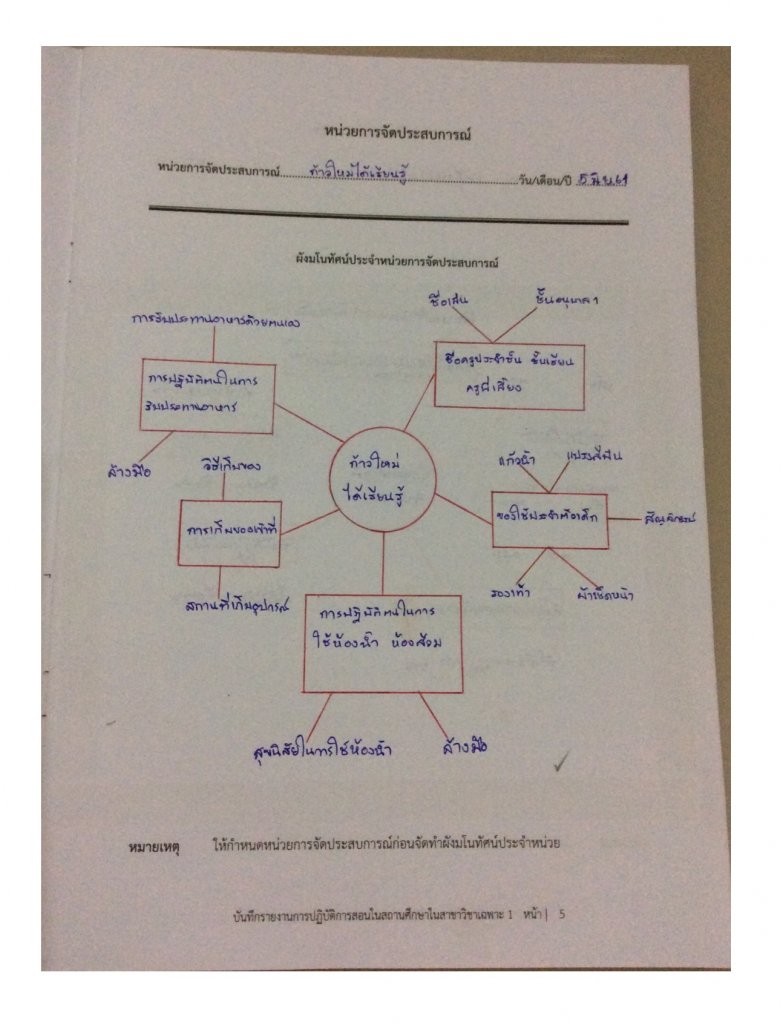 หน่วยการจัดประสบการณ์
หน่วยการจัดประสบการณ์.......ก้าวใหม่ได้เรียนรู้.......วัน/เดือน/ปี 5 มิ.ย.61
ผังมโนทัศน์ประจำหน่วยการจัดประสบการณ์
ชื่อเล่น
ชั้นอนุบาล 1
การรับประทานอาหารด้วยตนเอง
ชื่อครูประจำชั้น ชั้นเรียน
ครูพี่เลี้ยง
การปฏิบัติตนในการ
รับประทานอาหาร
ล้างมือ
วิธีเก็บของ
ก้าวใหม่
ได้เรียนรู้
แก้วน้ำ
แปรงสีฟัน
ของใช้ประจำตัวเด็ก
สัญลักษณ์
การเก็บของเข้าที่
รองเท้า
ผ้าเช็ดหน้า
สถานที่เก็บอุปกรณ์
การปฏิบัติตนในการ
ใช้ห้องน้ำ ห้องส้วม
สุขนิสัยในการใช้ห้องน้ำ
ล้างมือ
หมายเหตุ ให้กำหนดหน่วยการจัดประสบการณ์ก่อนจัดทำผังมโนทัศน์ประจำหน่วย
บันทึกรายงานการปฏิบัติการสอนในสถานศึกษาในสาขาวิชาเฉพาะ 1 หน้า | 5